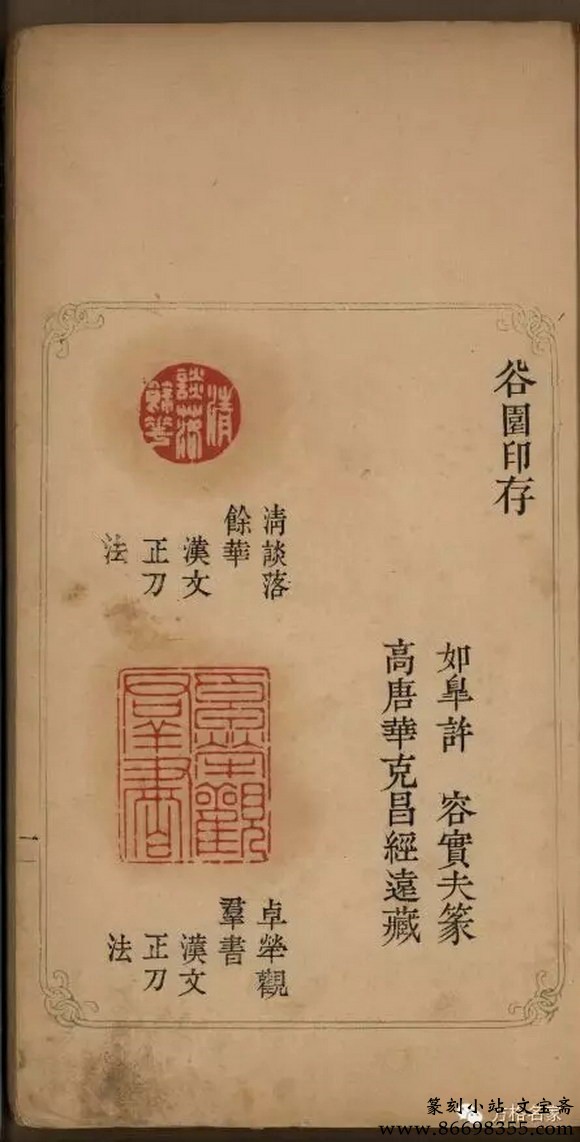 谷園印存
如皐許　容實夫篆
高唐華克昌經遠藏
清
談落
餘華
清談落
餘華
漢文
正刀
法
卓犖觀
羣書
卓犖觀
羣書
漢文
正刀
法
一
方格名家
篆刻小站 文宝斋
www.86698355.com